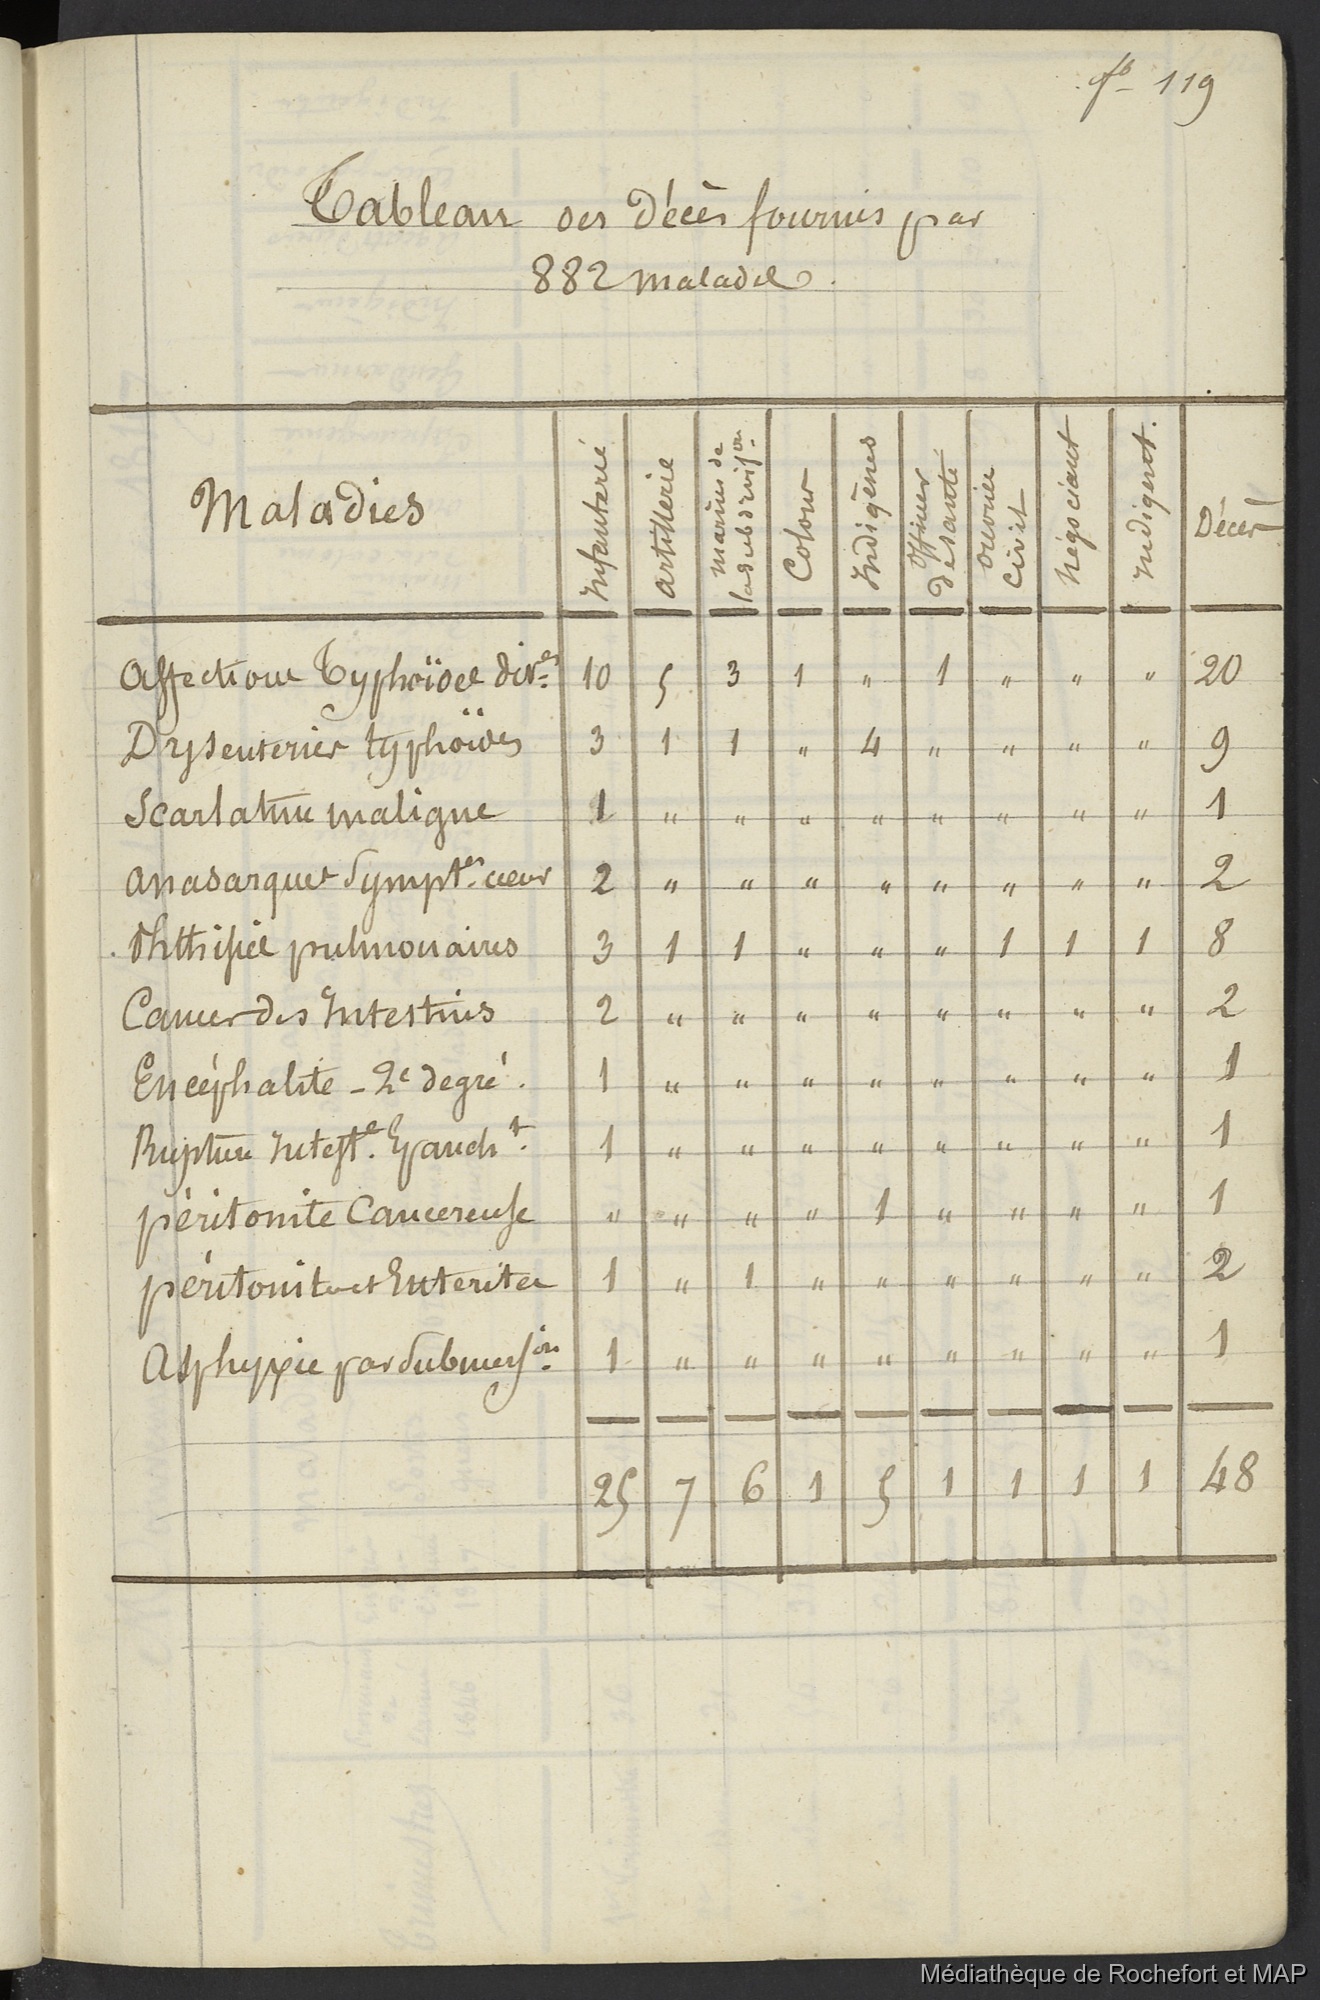 fo 119
Tableau des Décès fournis par
882 Malades.
Maladies | Infanterie | artillerie | marins de la subdivison | Colons | Indigènes | officiers de santé | ouvrier civil | Négociant | Indigent. | Décès
Affections Typhoïdes dives | 10 | 5 | 3 | 1 | " | 1 | " | " | " | 20
Dysenteries typhoïdes | 3 | 1 | 1 | " | 4 | " | " | " | " | 9
Scarlatine maligne | 1 | " | " | " | " | " | " | " | " | 1
Anasarques Symptes. cœur | 2 | " | " | " | " | " | " | " | " | 2
Phthisies pulmonaires | 3 | 1 | 1 | " | " | " | 1 | 1 | 1 | 8
Cancer des Intestins | 2 | " | " | " | " | " | " | " | " | 2
Encéphalite - 2e degré. | 1 | " | " | " | " | " | " | " | " | 1
Rupture Inteste. Epancht. | 1 | " | " | " | " | " | " | " | " | 1
péritonite Cancereuse | " | " | " | " | 1 | " | " | " | " | 1
péritonite et Enterites | 1 | " | 1 | " | " | " | " | " | " | 2
Asphyxie par Submersion | 1 | " | " | " | " | " | " | " | " | 1
25 | 7 | 6 | 1 | 5 | 1 | 1 | 1 | 1 | 48
Médiathèque de Rochefort et MAP